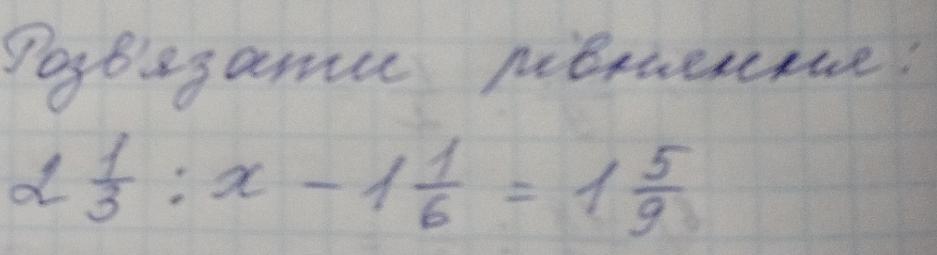 Розв'язати рівняння:
2 1/3 : x - 1 1/6 = 1 5/9